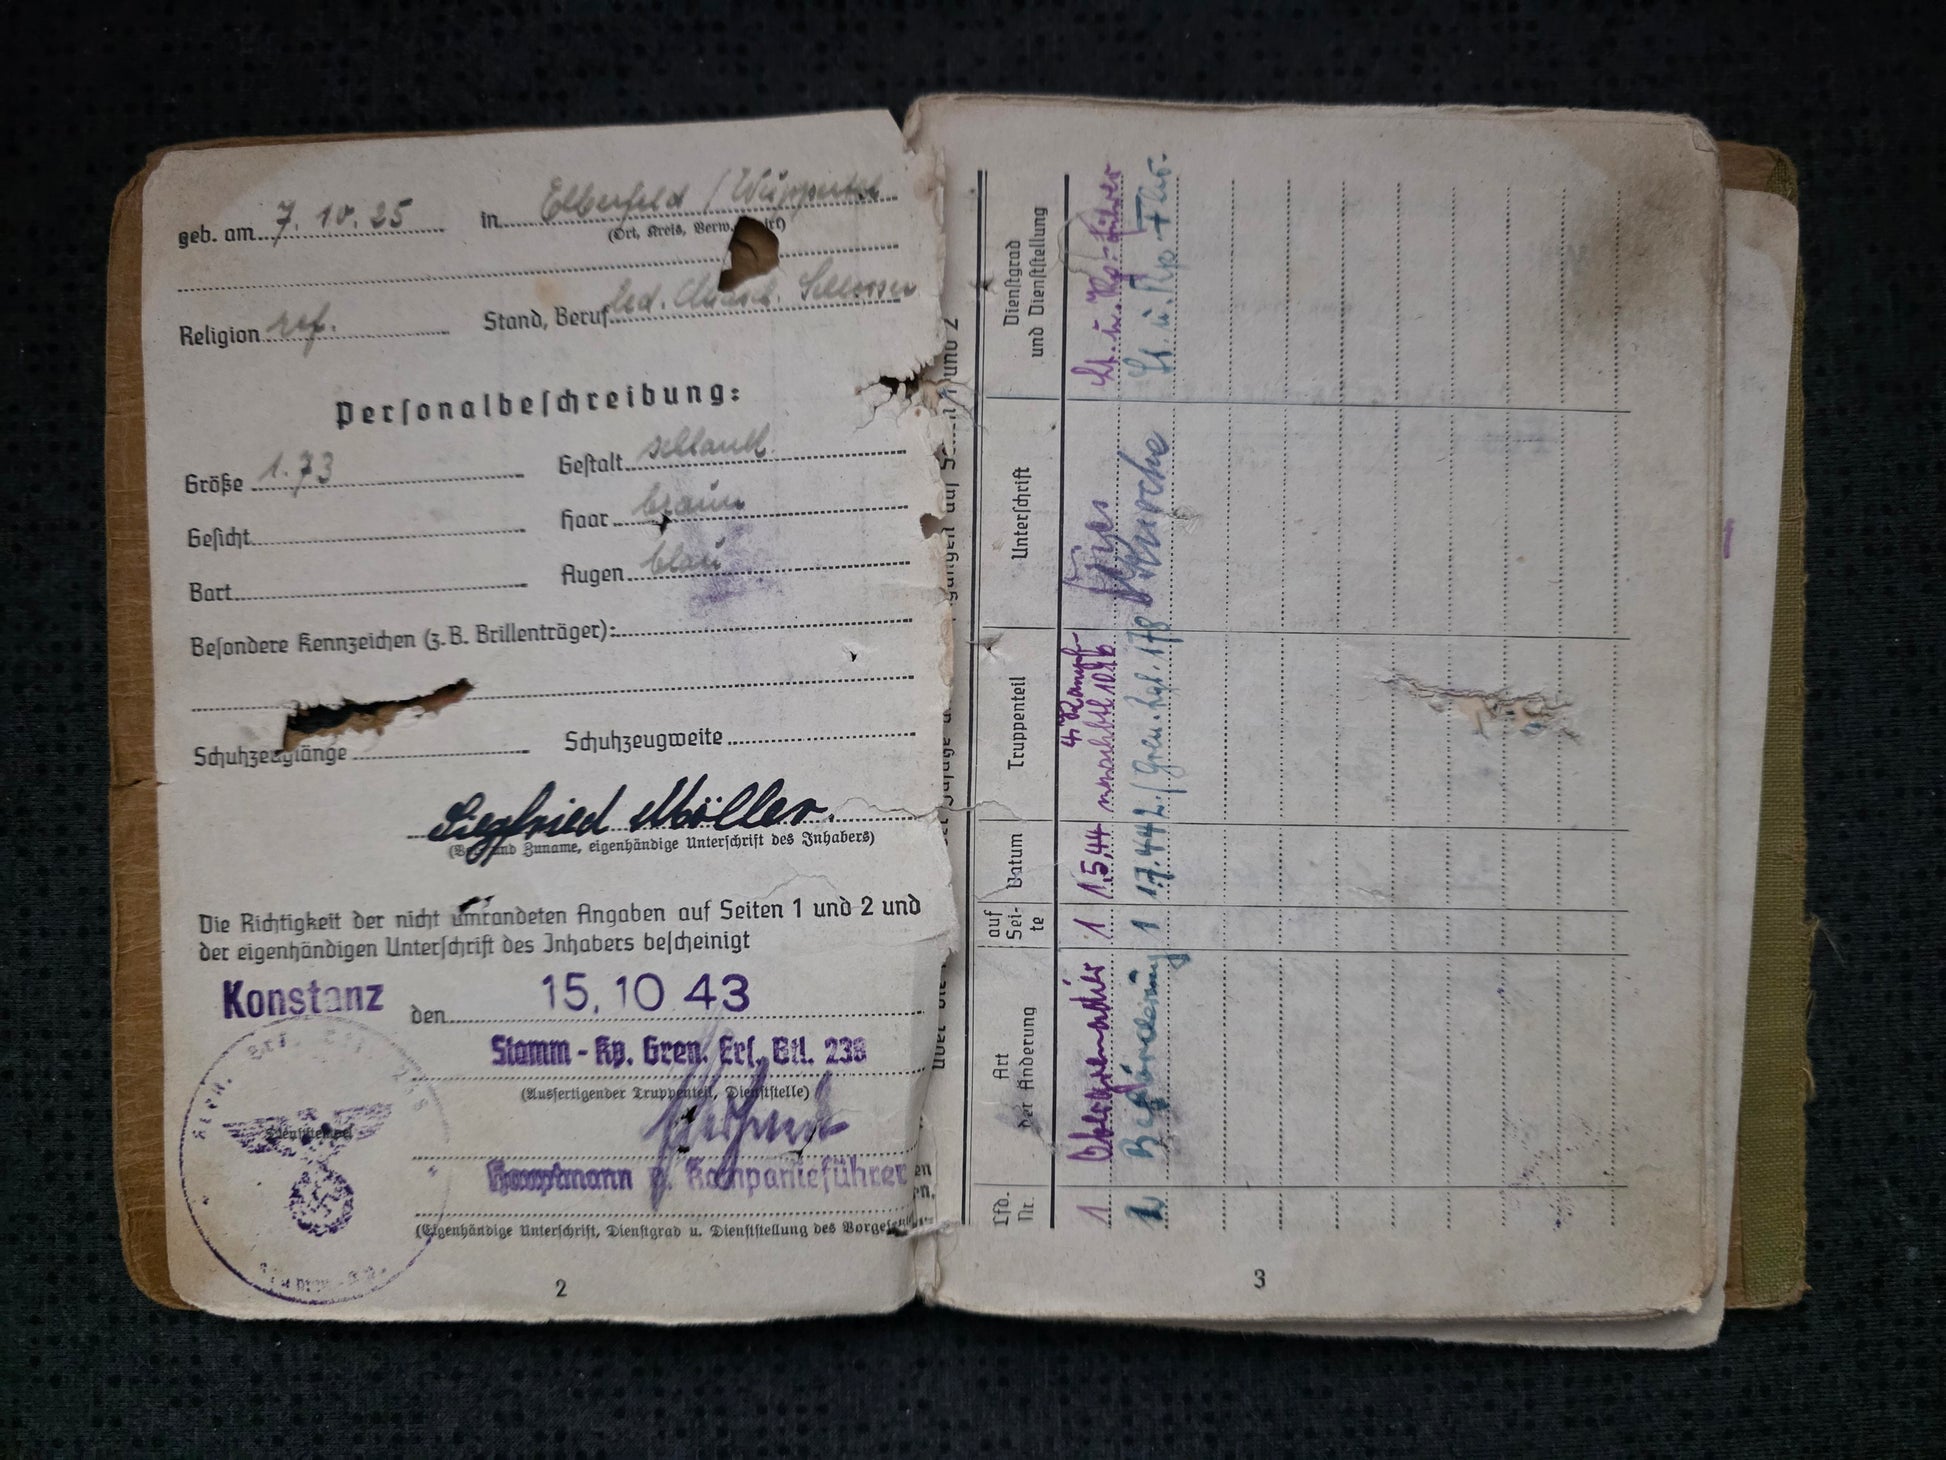 geb. am 7. 10. 25 in Elberfeld / Wuppertal
(Ort, Kreis, Verw.
Religion ref. Stand, Beruf led.
Personalbeschreibung:
Größe 1.73 Gestalt schlank
Gesicht Haar braun
Bart Augen blau
Besondere Kennzeichen (z. B. Brillenträger):
Schuhzeuglänge Schuhzeugweite
Siegfried Möller.
und Zuname, eigenhändige Unterschrift des Inhabers)
Die Richtigkeit der nicht umrandeten Angaben auf Seiten 1 und 2 und
der eigenhändigen Unterschrift des Inhabers bescheinigt
Konstanz den 15. 10 43
Stamm-Kp. Gren. Ers. Btl. 238
(Ausfertigender Truppenteil, Dienststelle)
Dienststempel
Hauptmann u. Kompanieführer
(Eigenhändige Unterschrift, Dienstgrad u. Dienststellung des
2
und 2
Lfd. Nr. Art der Änderung auf Sei-te Datum Truppenteil Unterschrift Dienstgrad und Dienststellung
1 Obergrenadier 1 1.5.44 Lt. u. Kp.-Führer
2 Beförderung 1 Gren. Rgt. 178 Lt. u. Kp.
3